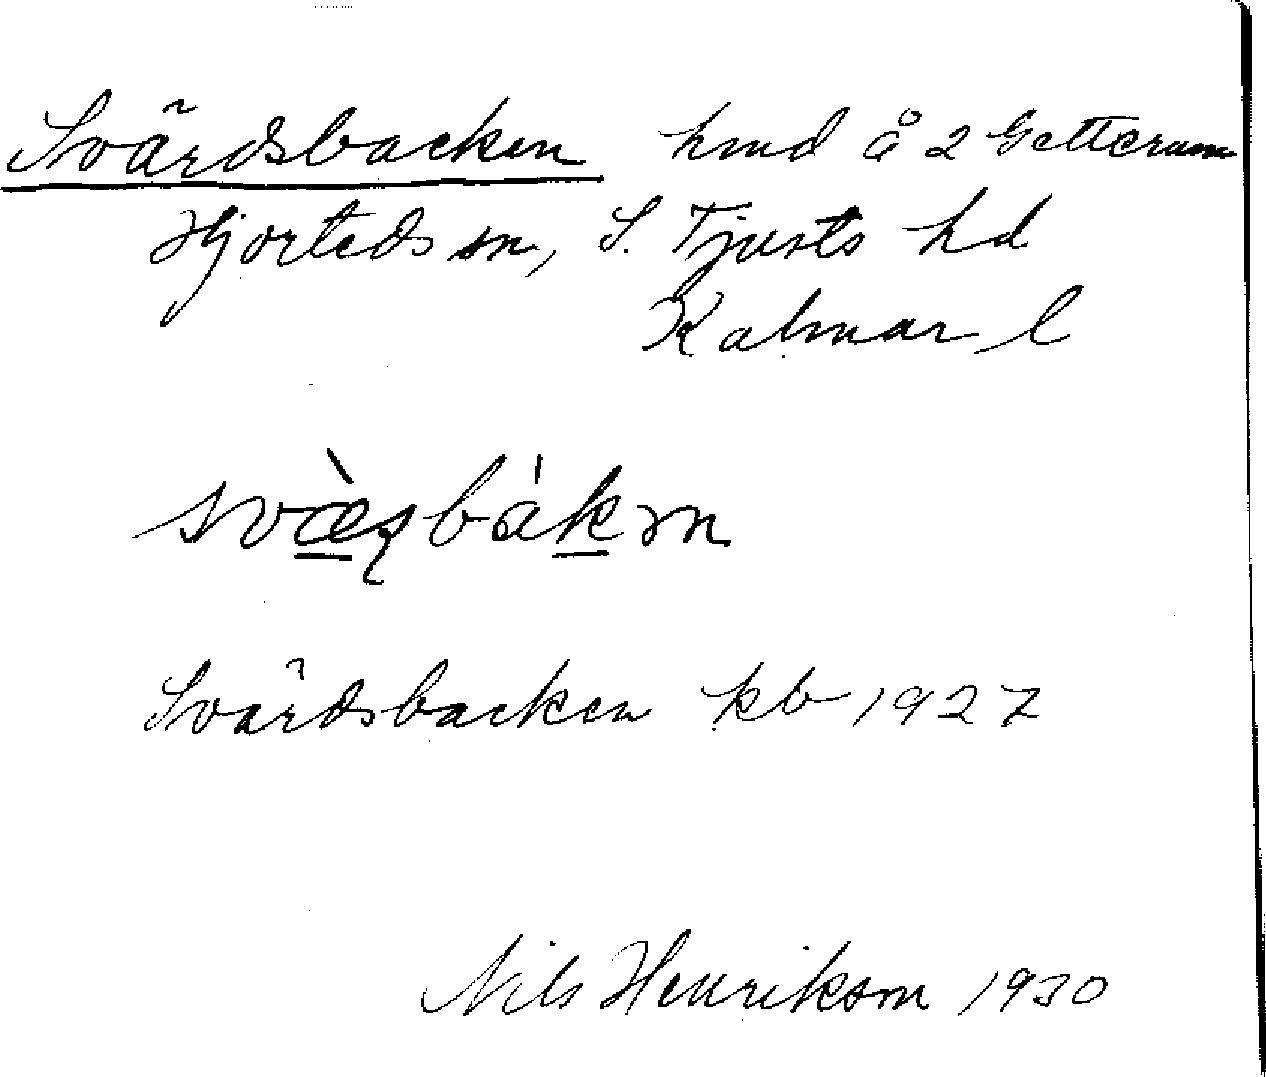 Svärdsbacken hmd å 2 Getterum
Hjorteds sn, S. Tjusts hd
Kalmar l
Svärdsbacken kb 1927
Nils Henrikson 1930